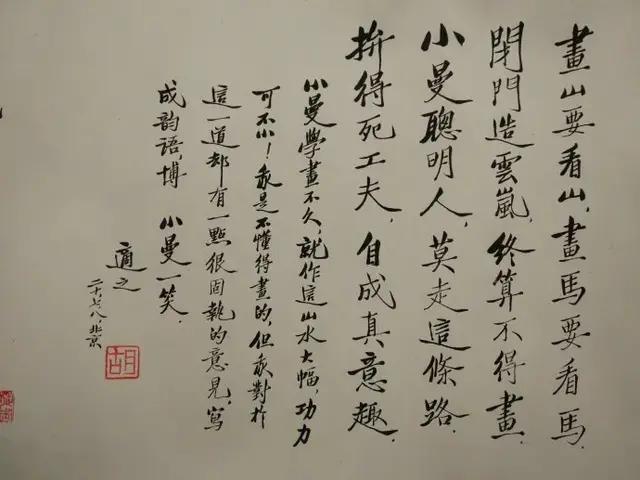 畫山要看山，畫馬要看馬，
閉門造雲嵐，終算不得畫．
小曼聰明人，莫走這條路．
拚得死工夫，自成真意趣．
小曼學畫不久，就作這山水大幅，功力
可不小！我是不懂得畫的，但我對於
這一道却有一點很固執的意見，寫
成韵語，博 小曼一笑．
適之
二十，七，八，北京
胡